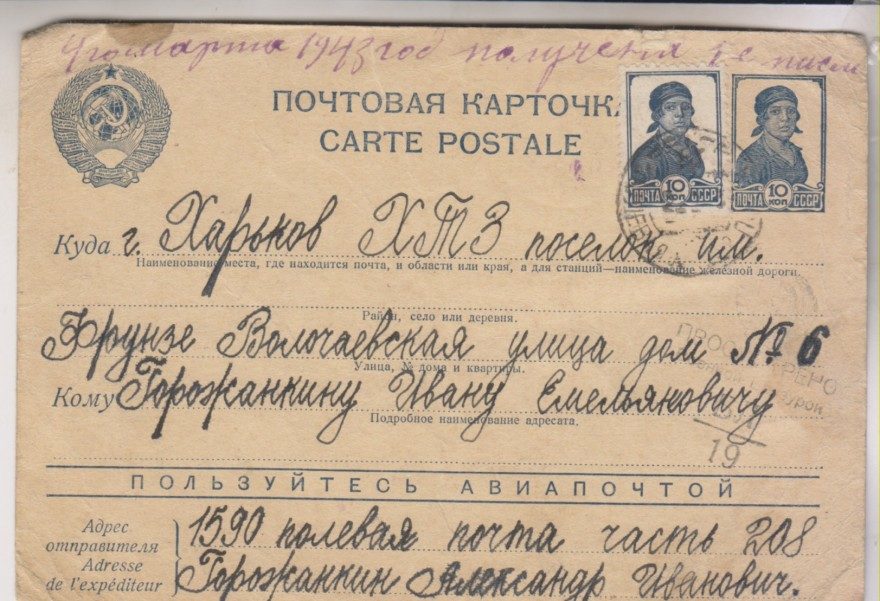 марта 1943 год получена
ПОЧТОВАЯ КАРТОЧКА
CARTE POSTALE
ПОЧТА 10 КОП СССР
ПОЧТА 10 КОП СССР
Куда г. Харьков ХТЗ поселок им.
Наименование места, где находится почта, и области или края, а для станций—наименование железной дороги.
Район, село или деревня.
Фрунзе Волочаевская улица дом № 6
Улица, № дома и квартиры.
Кому Горожанкину Ивану Емельяновичу
Подробное наименование адресата.
19
ПОЛЬЗУЙТЕСЬ АВИАПОЧТОЙ
Адрес отправителя
Adresse de l'expéditeur
1590 полевая почта часть 208
Горожанкин Александр Иванович.